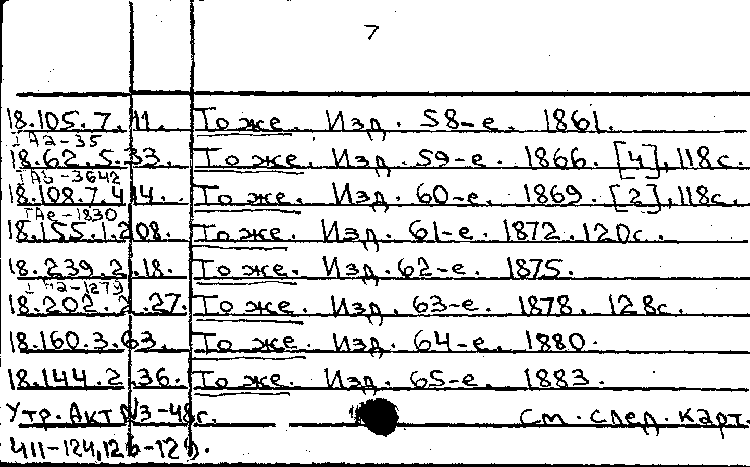 7
18.105.7.11. То же. Изд. 58-е. 1861.
IАа-35
18.62.5.33. То же. Изд. 59-е. 1866. [4], 118с.
IАб-3642
18.108.7.414. То же. Изд. 60-е. 1869. [2], 118с.
IАе-1830
18.155.1.208. То же. Изд. 61-е. 1872. 120с.
18.239.2.18. То же. Изд. 62-е. 1875.
18.202.2.27. То же. Изд. 63-е. 1878. 128с.
18.160.3.63. То же. Изд. 64-е. 1880.
18.144.2.36. То же. Изд. 65-е. 1883.
Утр. Акт №3-48г. См. след. карт.
411-124,126-129.